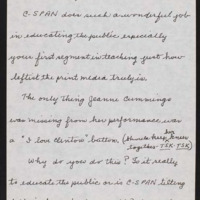 C-SPAN does such a wonderful job
in educating the public especially
your first segment in teaching just how
leftist the print media truly is.
The only thing Jeanne Cummings
was missing from her performance was
a "I love Clinton" button. (should keep her knees
together - TSK TSK)
Why do you do this? Is it really
to educate the public or is C-SPAN letting